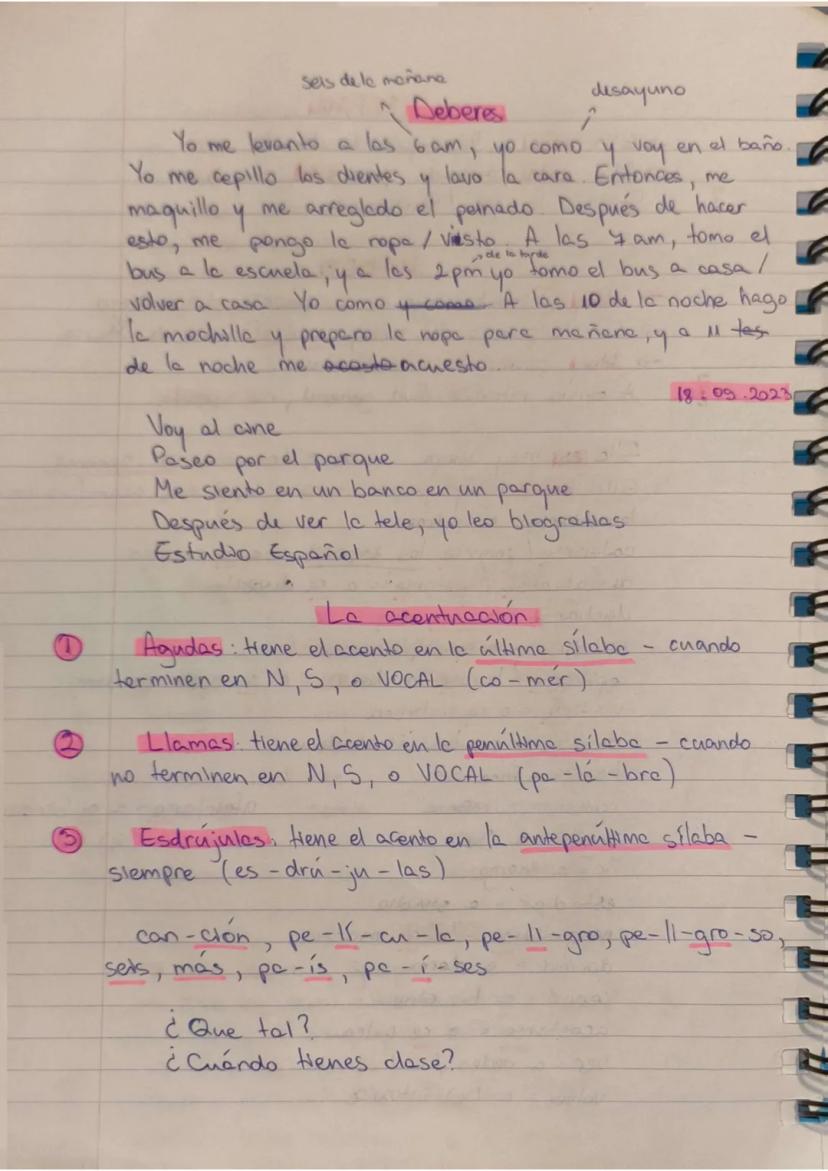 seis de la mañana
desayuno
Deberes
Yo me levanto a las 6 am, yo como y voy en el baño.
Yo me cepillo los dientes y lavo la cara. Entonces, me
maquillo y me arreglado el peinado. Después de hacer
esto, me pongo la ropa / visto. A las 7 am, tomo el
de la tarde
bus a la escuela, y a las 2pm yo tomo el bus a casa /
volver a casa Yo como y como A las 10 de la noche hago
la mochilla y preparo la ropa para mañana, y a 11 tes
de la noche me acosto acuesto.
18.09.2023
Voy al cine
Paseo por el parque
Me siento en un banco en un parque
Después de ver la tele, yo leo biografias
Estudio Español
La acentuación
1 Agudas: tiene el acento en la última sílaba - cuando
terminen en N, S, o VOCAL (co-mér)
2 Llamas: tiene el acento en la penúltima sílaba - cuando
no terminen en N, S, o VOCAL (pa-lá-bra)
3 Esdrújulas: tiene el acento en la antepenúltima sílaba -
siempre (es-drú-ju-las)
can-ción, pe-lí-cu-la, pe-li-gro, pe-li-gro-so,
seis, más, pa-ís, pa-í-ses
¿Que tal?
¿Cuándo tienes clase?